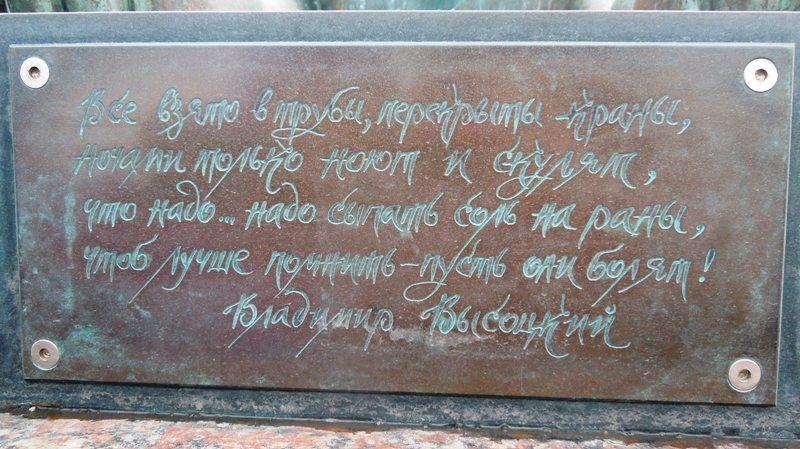 Все взято в трубы, перекрыты краны,
Ночами только ноют и скулят,
что надо... надо сыпать соль на раны,
чтоб лучше помнить - пусть они болят!
Владимир Высоцкий